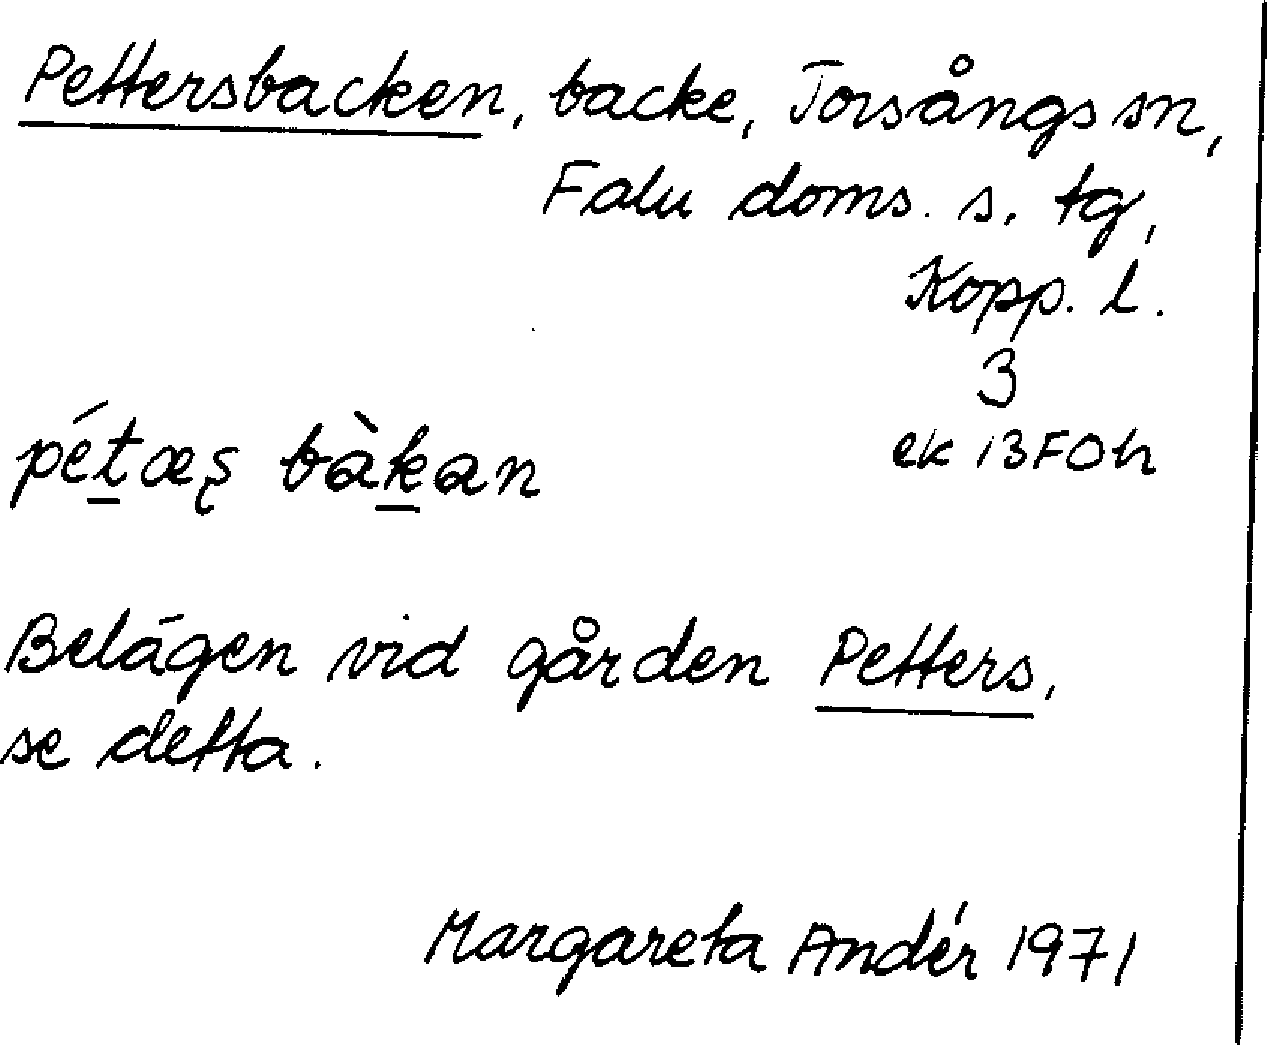 Pettersbacken, backe, Torsångs sn,
Falu doms. s. tg,
Kopp. l.
3
pét̲æș bàk̲an
ek 13F0h
Belägen vid gården Petters,
se detta.
Margareta Andér 1971